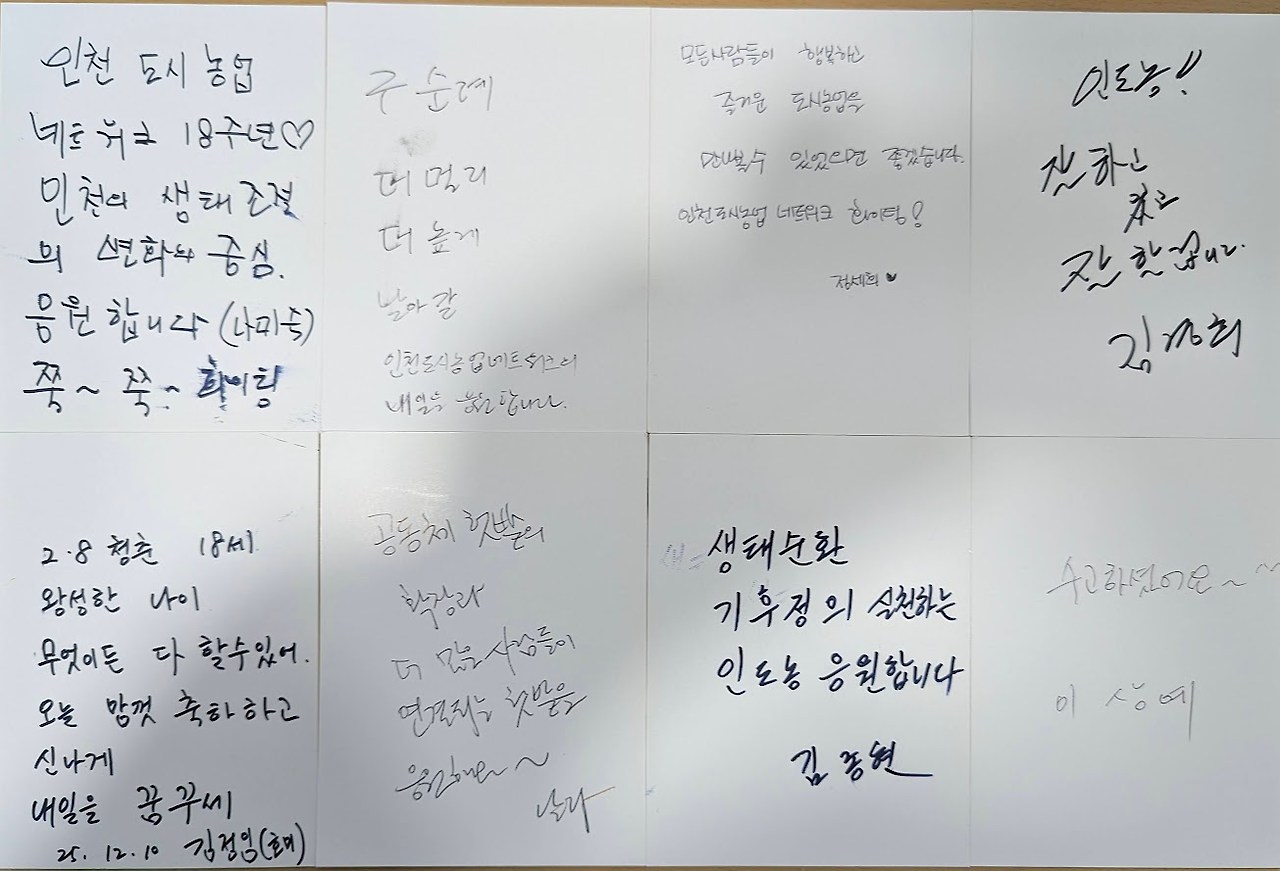 인천 도시 농업
네트워크 18주년♡
인천의 생태 조절
의 변화와 중심.
응원합니다 (나미숙)
쭉~ 쭉~ 화이팅
구순례
더 멀리
더 높게
날아갈
인천도시농업네트워크의
내일을 응원합니다.
모든사람들이 행복하고
즐거운 도시농업을
만나볼수 있었으면 좋겠습니다.
인천도시농업 네트워크 화이팅!
정세희 ♥
인도농!!
잘하고
있고
잘할겁니다.
김경희
2.8 청춘 18세
왕성한 나이
무엇이든 다 할수있어.
오늘 맘껏 축하하고
신나게
내일을 꿈꾸세
25. 12. 10 김정임(호미)
공동체 텃밭의
확장과
더 많은 사람들이
연결되는 텃밭을
응원해요~~
생태순환
기후정의 실천하는
인도농 응원합니다
김종현
수고하셨어요~~
이상예